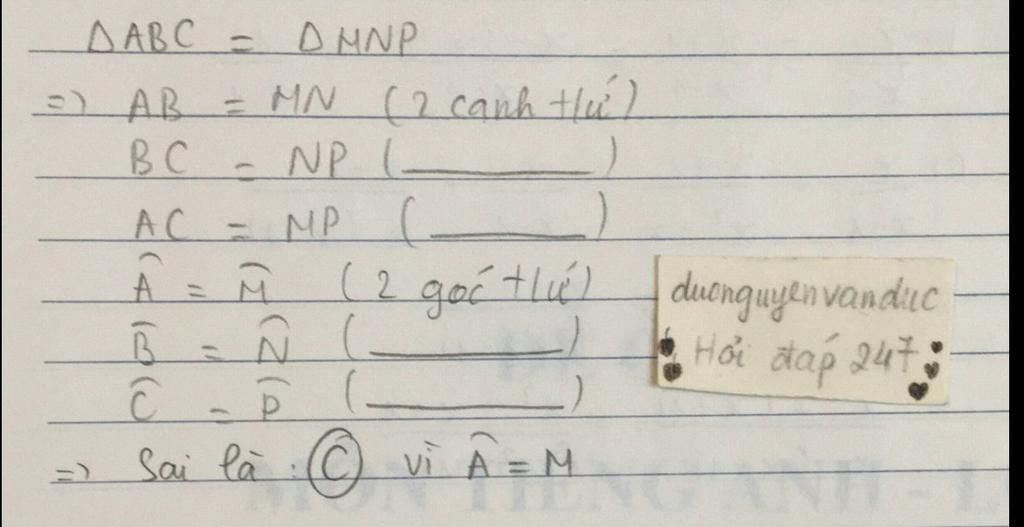 ΔABC = ΔMNP
=> AB = MN (2 cạnh tlứ)
BC = NP (______)
AC = MP (______)
Â = M̂ (2 góc tlứ)
B̂ = N̂ (______)
Ĉ = P̂ (______)
=> Sai là : Ⓒ vì Â = M
duonguyenvanduc
Hỏi đáp 247